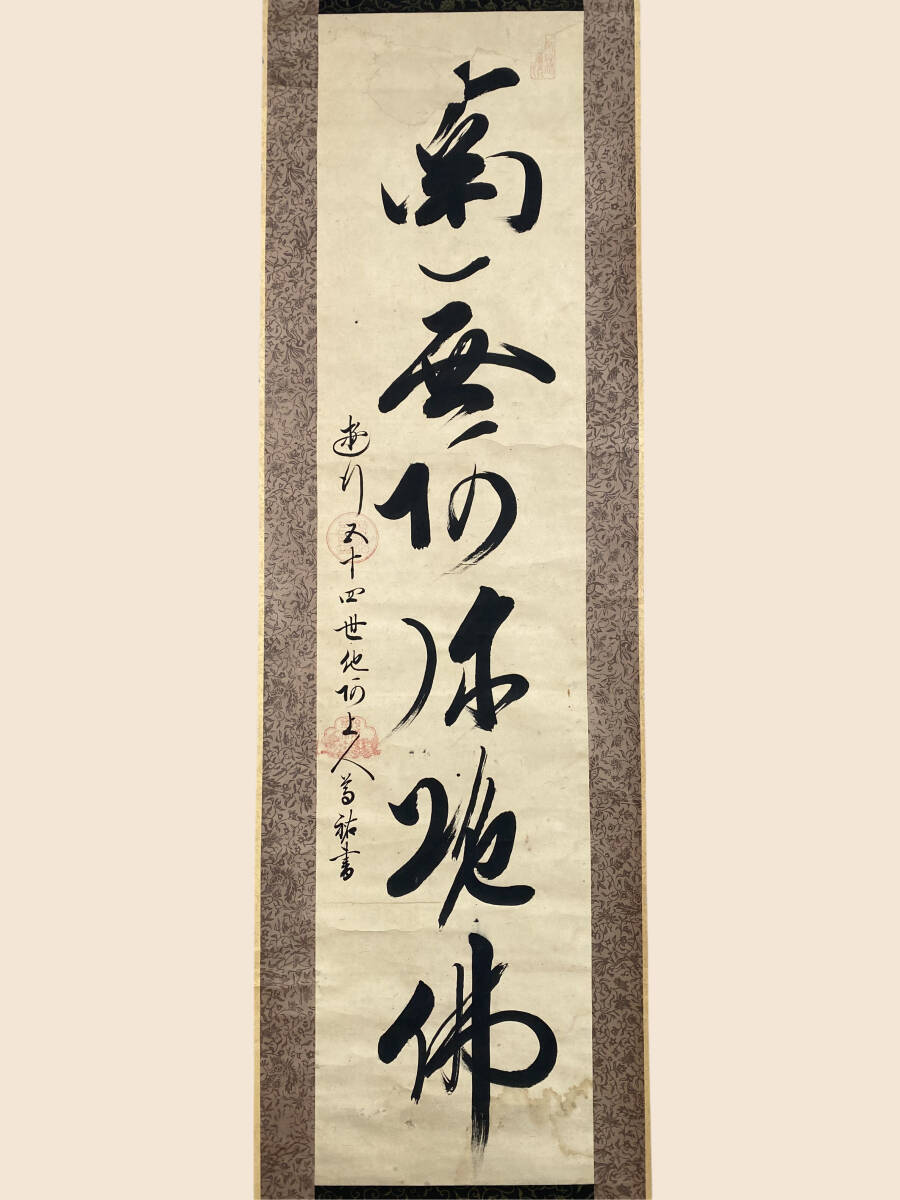 南無阿弥陀佛
遊行五十四世他阿上人尊祐書